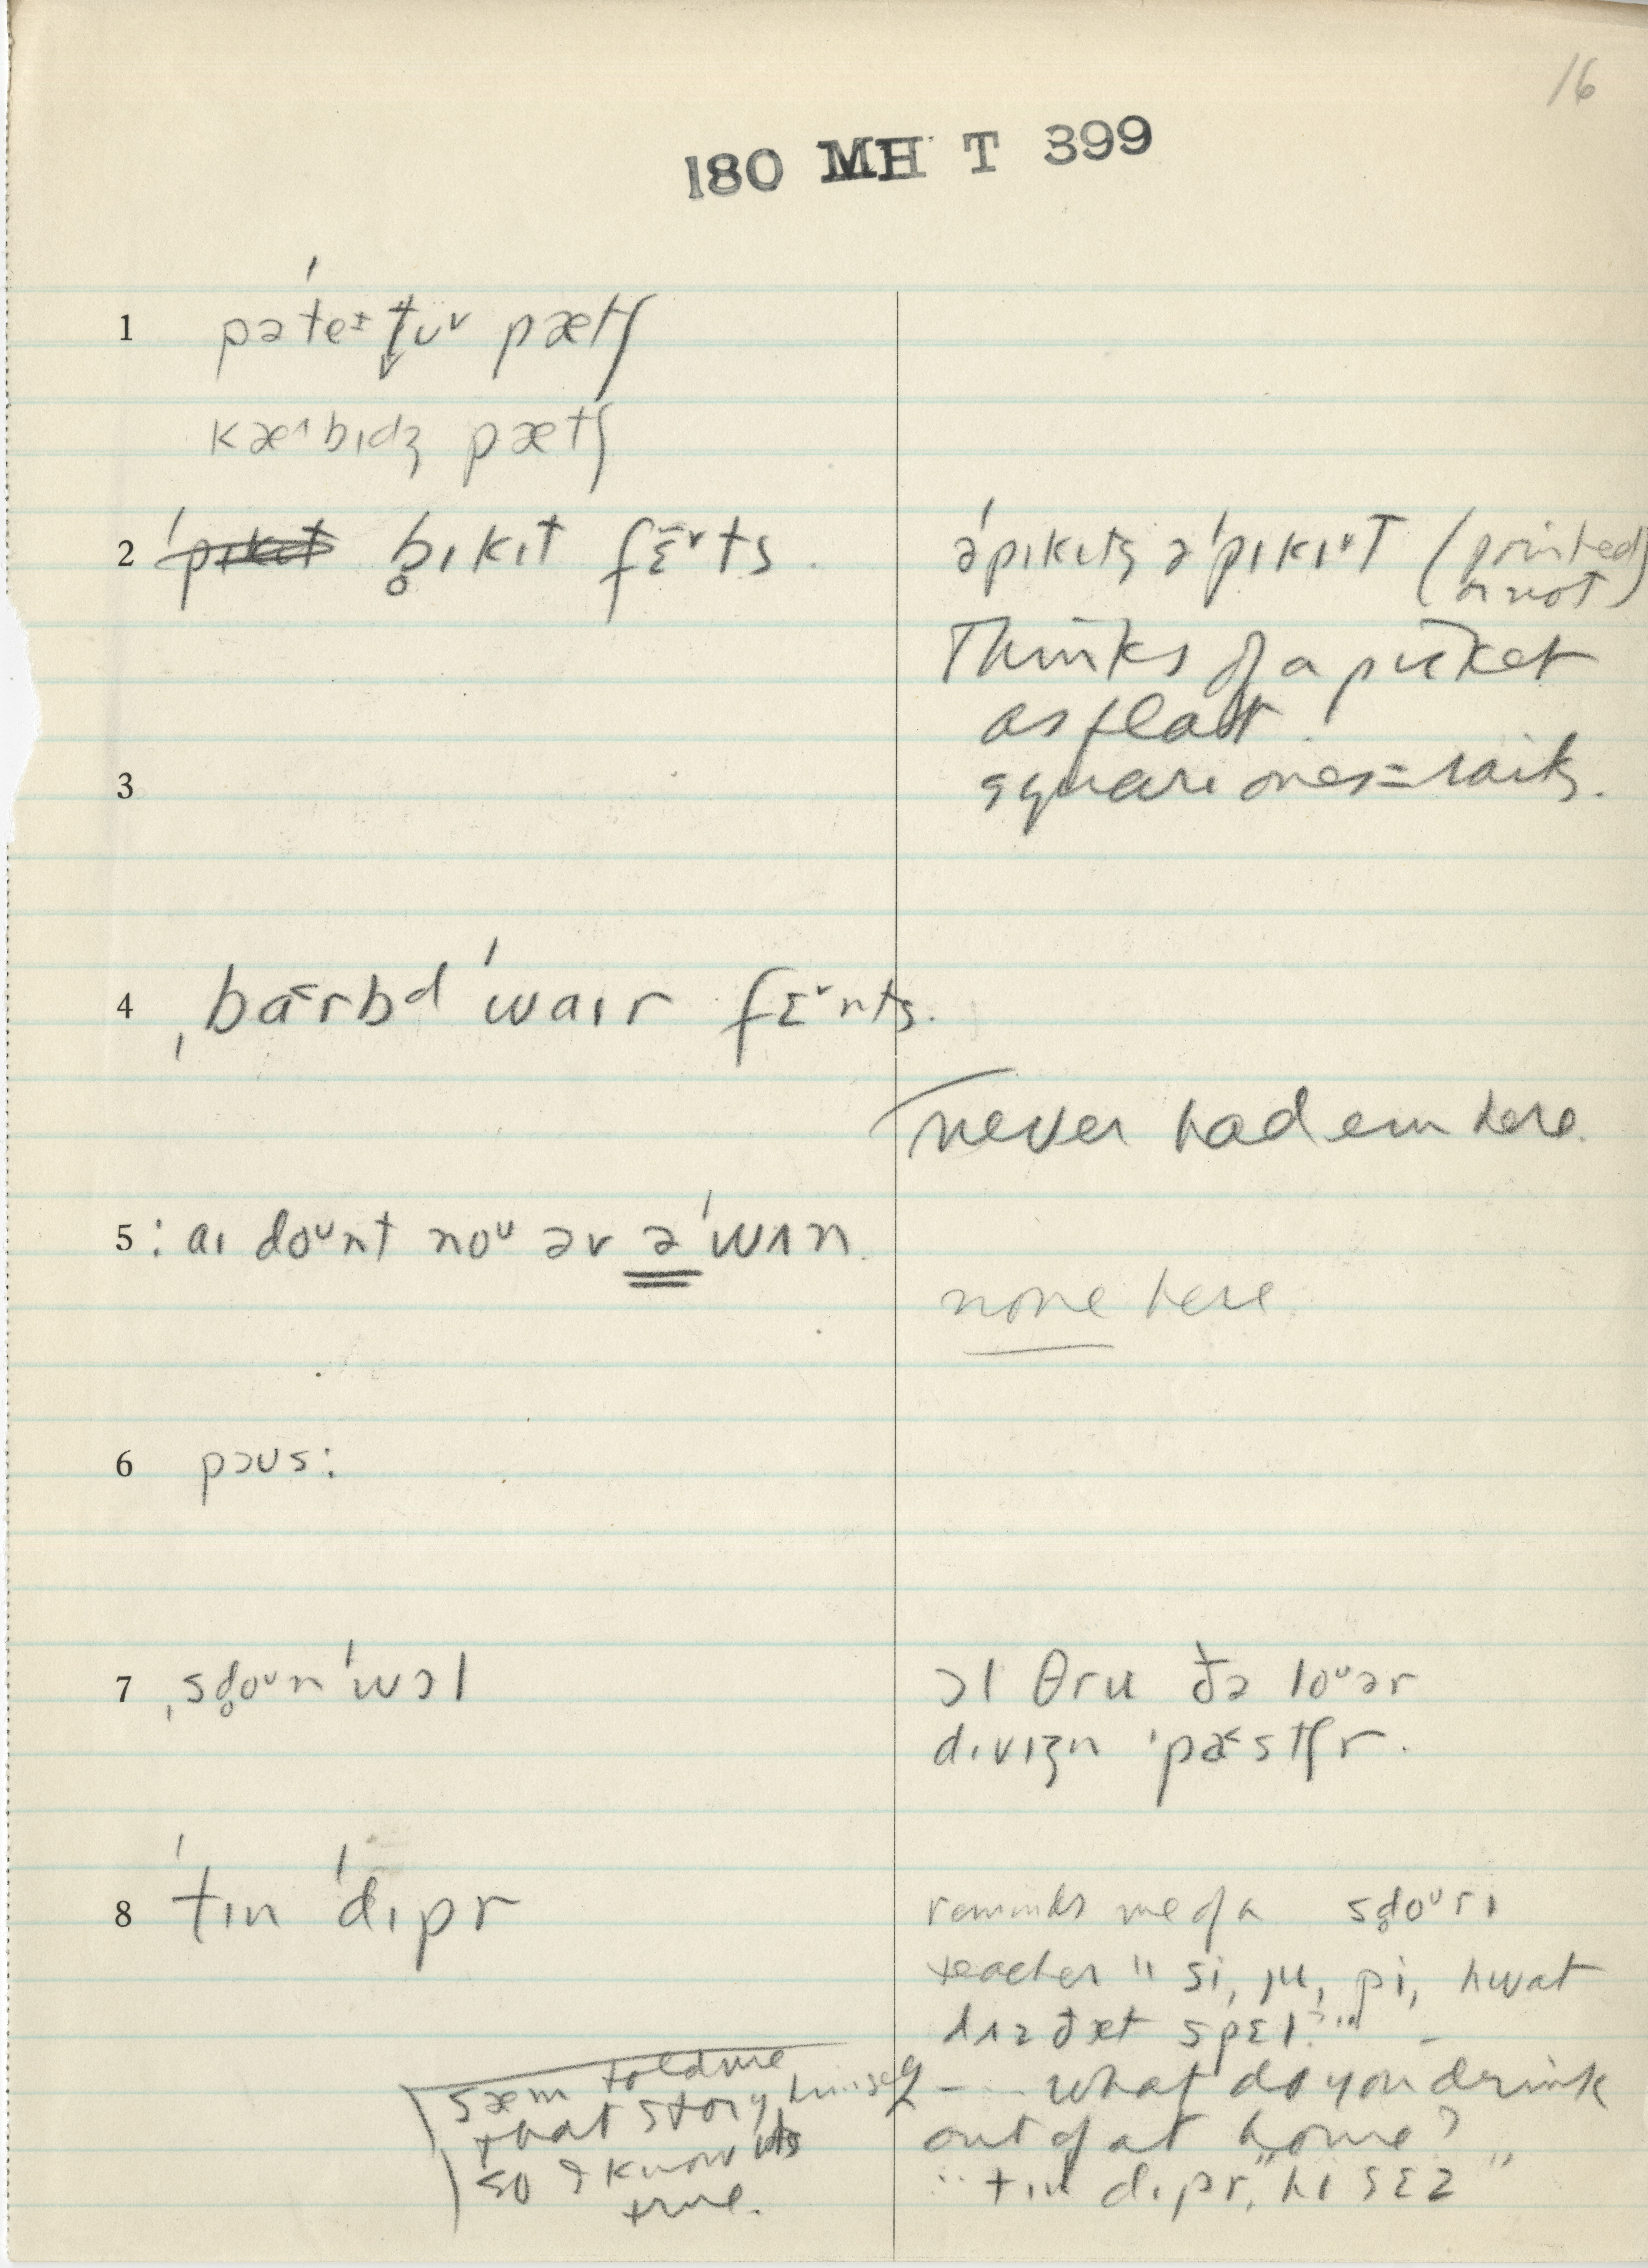 16
180 MH T 399
1 pəˈteɪt̬ʊˇ pætʃ
kæ^bɪdʒ pætʃ
2 b̥ɪkɪt fɛ̃ˇts.
ə ˈpɪkɪts ə ˈpɪkɪˇt (pointed
or not)
Thinks of a picket
as flat.
square ones = rails.
3
4 ˌba˂rbd ˈwaɪr fɛˇnts.
never had em here.
5 : aɪ doʊnt noʊ əv ə ˈwʌn.
none here.
6 pɔʊs:
7 ˌsd̥oʊn ˈwɔl
ɔl θru ðə loʊər
dɪvɪʒn ˈpæ˂stʃr.
8 ˈtɪn ˈdɪpr
reminds me of a sd̥oʊrɪ
teacher " si, ju, pi, hwat
dʌz ðæt spɛl?"
- -- what do you drink
out of at home?
"tɪn dɪpr," hi sɛz "
sæm told me
that story himself
so I know its
true.